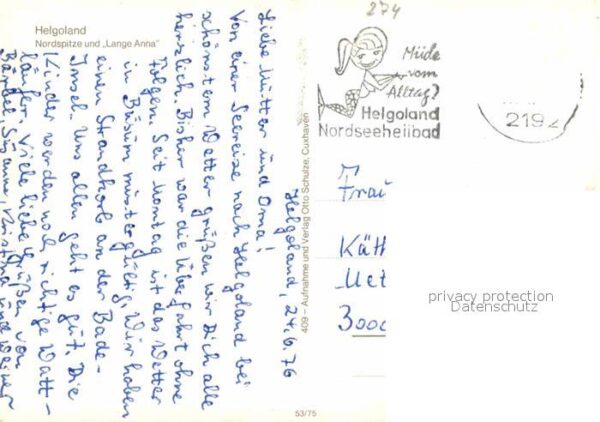 Helgoland
Nordspitze und „Lange Anna"
274
Müde
vom
Alltag?
Helgoland
Nordseeheilbad
2192
Helgoland, 24.6.76
Liebe Mutter und Oma!
Von einer Seereise nach Helgoland bei
schönstem Wetter grüßen wir Dich alle
herzlich. Bisher war die Überfahrt ohne
Folgen. Seit Montag ist das Wetter
in Büsum mustergültig. Wir haben
einen Strandkorb an der Bade-
Insel. Uns allen geht es gut. Die
Kinder werden noch richtige Watt-
läufer. Viele liebe Grüße von
Bärbel, Susanne, Kristina und Werner
409 – Aufnahme und Verlag Otto Schulze, Cuxhaven
53/75
Frau
Kätt
Met
3000
privacy protection
Datenschutz